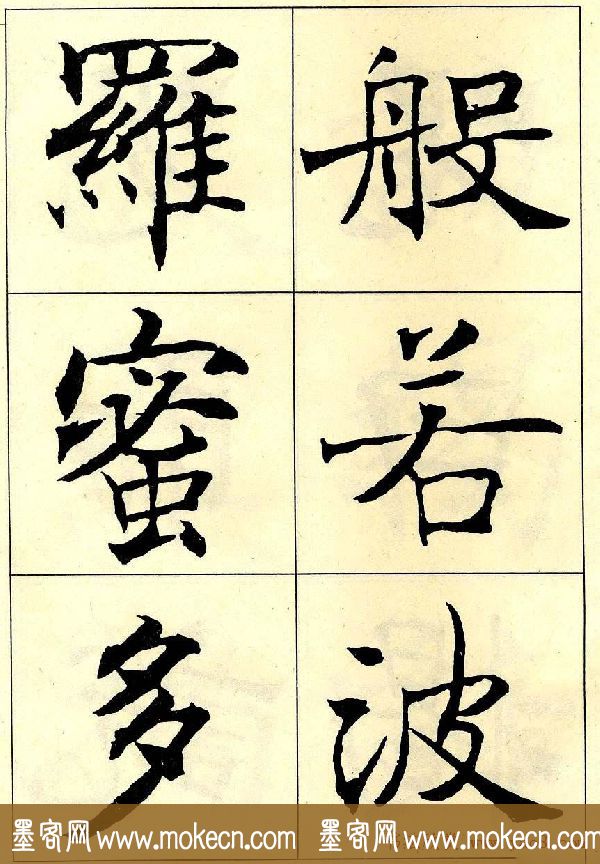 般若波
羅蜜多
墨客网 www.mokecn.com 墨客网 www.mokecn.com